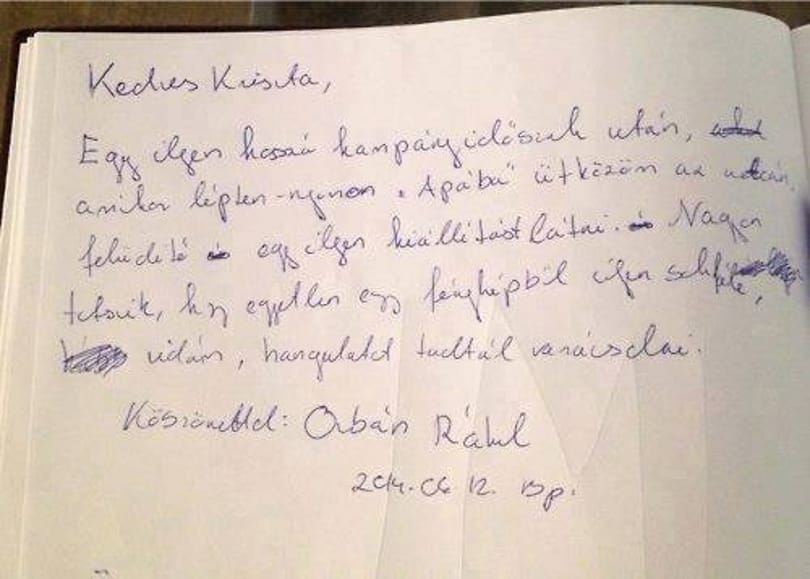 Kedves Kriszta,
Egy ilyen hosszú kampányidőszak után,
amikor lépten-nyomon „Apába" ütközöm az utcán,
felüdítő egy ilyen kiállítást látni. Nagyon
tetszik, hogy egyetlen egy fényképből ilyen sokféle,
vidám, hangulatot tudtál varázsolni.
Köszönettel: Orbán Ráhel
2014. 06. 12. Bp.